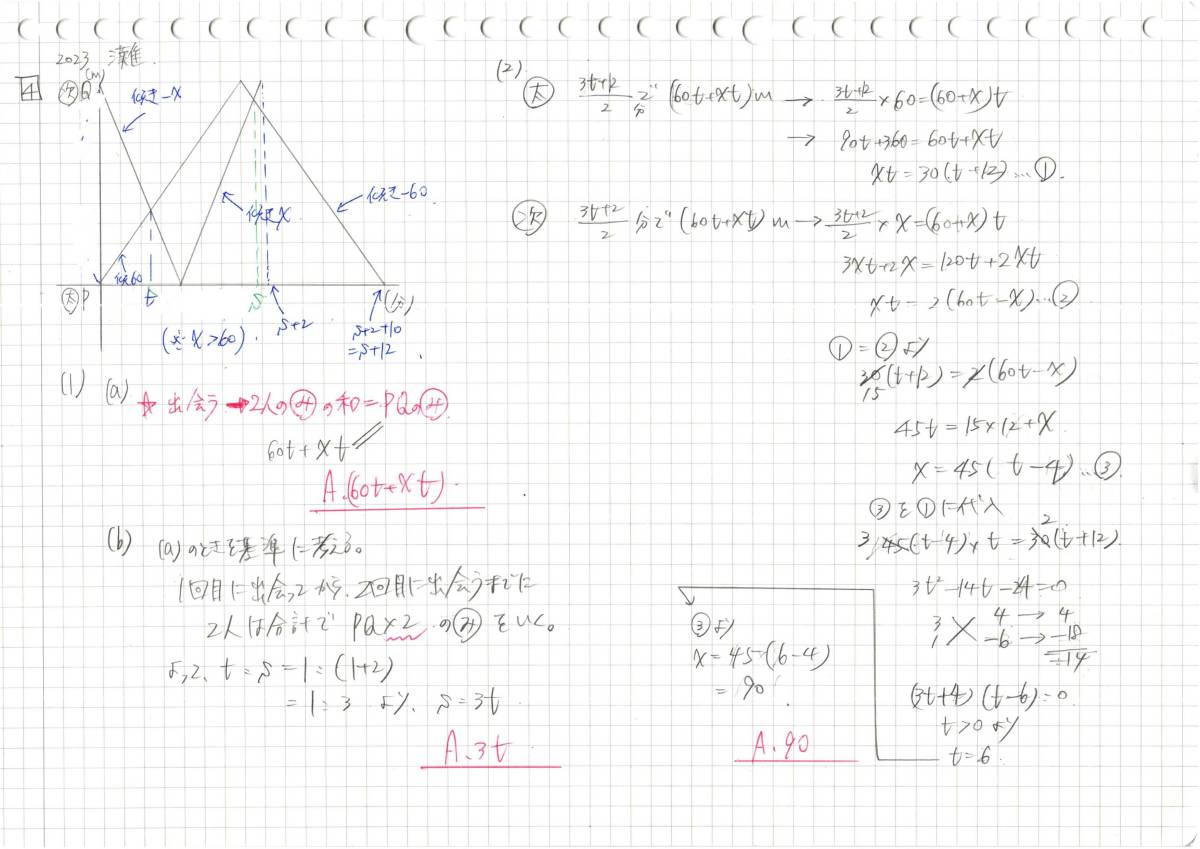 2023 灘
4
次 Q (m)
傾き-x
傾き-60
傾き x
傾き60
太 P
t
s
(分)
s+2
s+2+10
=s+12
(※ x>60)
(1) (a)
☆ 出会う → 2人の み の和 = PQの み
60t+xt
A.(60t+xt)
(b) (a)のときを基準に考える。
1回目に出会ってから、2回目に出会うまでに
2人は合計で PQ×2 の み をいく。
よって、t:s=1:(1+2)
=1:3 より、s=3t
A.3t
(2)
太 3t+12/2 分で (60t+xt)m → 3t+12/2 ×60=(60+x)t
→ 90t+360=60t+xt
xt=30(t+12)…①
次 3t+2/2 分で (60t+xt)m → 3t+2/2 ×x=(60+x)t
3xt+2x=120t+2xt
xt=2(60t-x)…②
①=②より
30(t+12)=2(60t-x)
15
45t=15×12+x
x=45(t-4)…③
③を①に代入
2
3 45(t-4)×t=30(t+12)
3t²-14t-24=0
3 4 → 4
1 -6 → -18
-14
(3t+4)(t-6)=0
t>0より
t=6
③より
x=45(6-4)
=90
A.90